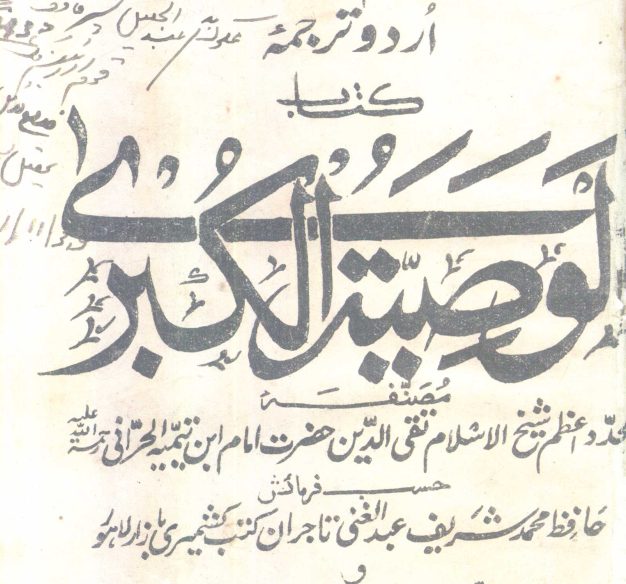 اُردو ترجمۂ
کتاب
الوصیۃ الکبریٰ
مُصَنَّفہ
مجدّد اعظم شیخ الاسلام تقی الدّین حضرت امام ابن تیمیّہ الحرّانی رحمۃ اللہ علیہ
حسب فرمائش
حافظ محمد شریف عبد الغنی تاجران کتب کشمیری بازار لاہور
و